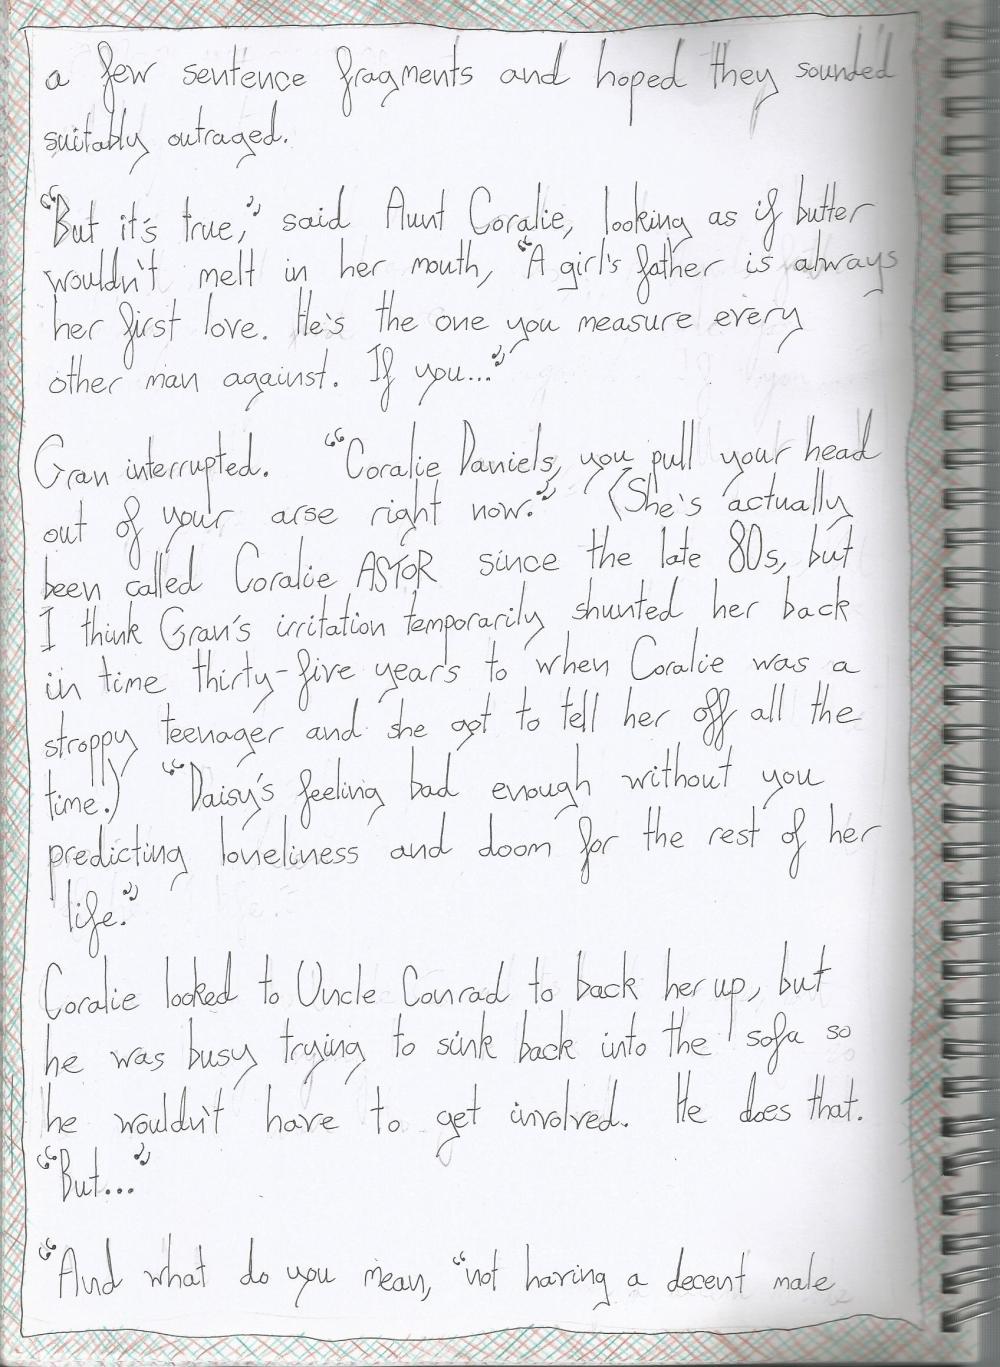 a few sentence fragments and hoped they sounded
suitably outraged.
"But it's true," said Aunt Coralie, looking as if butter
wouldn't melt in her mouth, "A girl's father is always
her first love. He's the one you measure every
other man against. If you..."
Gran interrupted. "Coralie Daniels, you pull your head
out of your arse right now." (She's actually
been called Coralie ASTOR since the late 80s, but
I think Gran's irritation temporarily shunted her back
in time thirty-five years to when Coralie was a
stroppy teenager and she got to tell her off all the
time.) "Daisy's feeling bad enough without you
predicting loneliness and doom for the rest of her
life."
Coralie looked to Uncle Conrad to back her up, but
he was busy trying to sink back into the sofa so
he wouldn't have to get involved. He does that.
"But..."
"And what do you mean, "not having a decent male